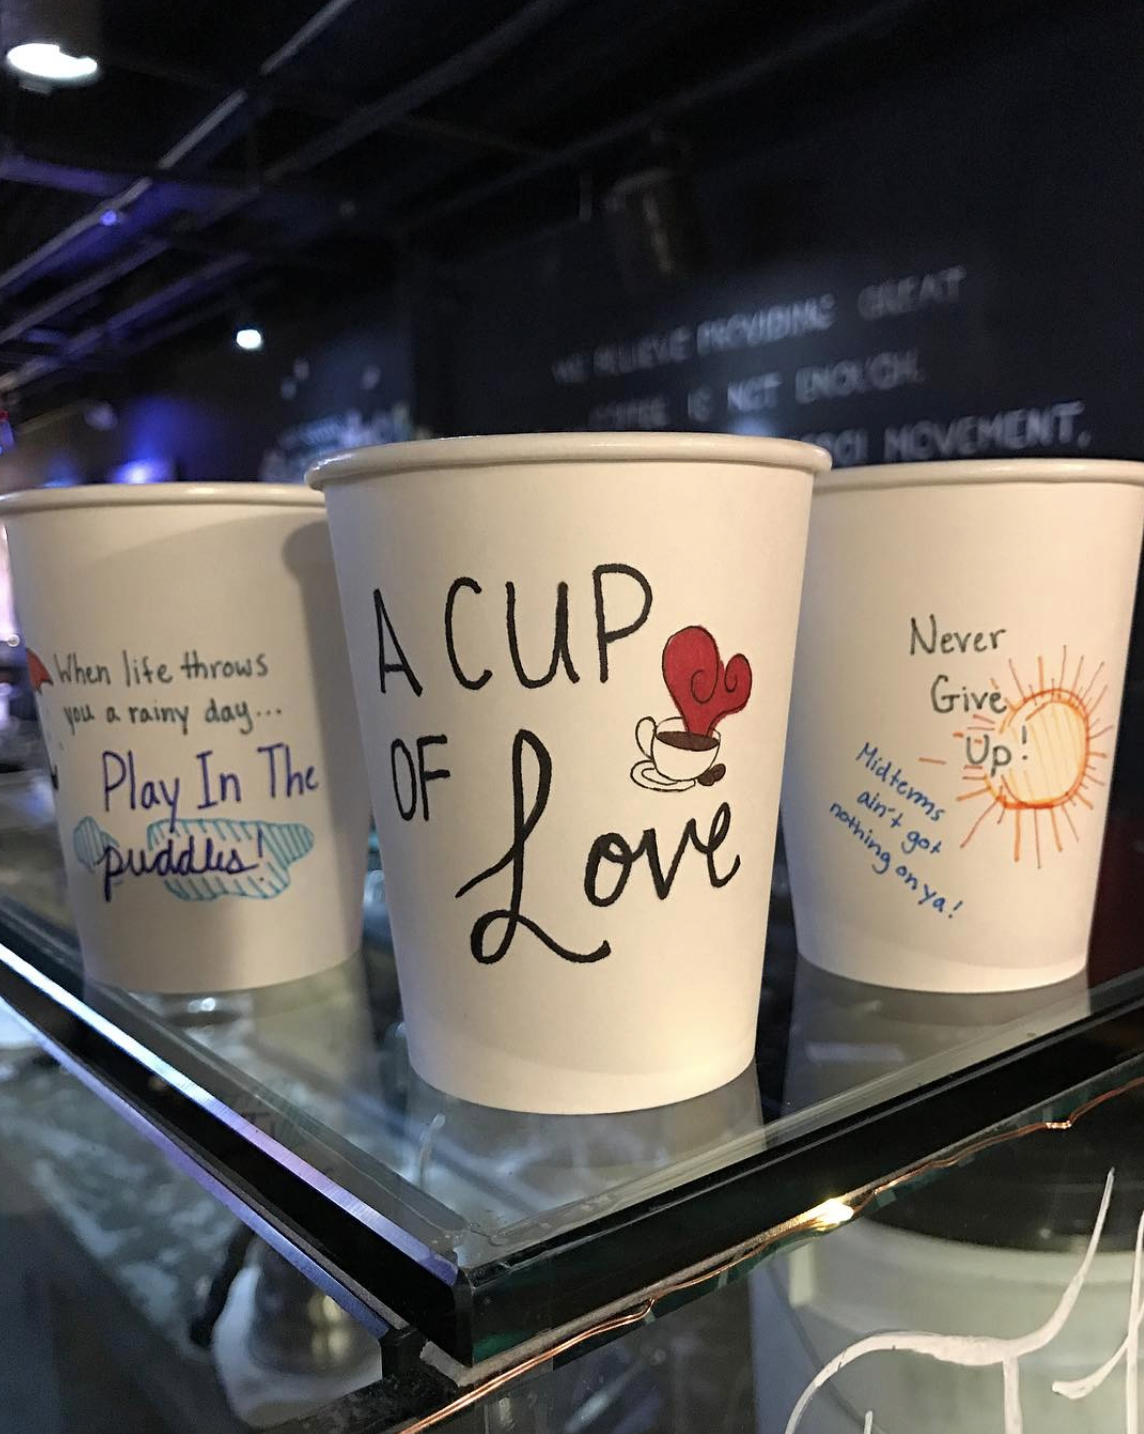 WE BELIEVE PROVIDING GREAT
COFFEE IS NOT ENOUGH.
MOVEMENT,
When life throws
you a rainy day...
Play In The
puddles!
A CUP
OF
Love
Never
Give
Up!
Midterms
ain't got
nothing on ya!